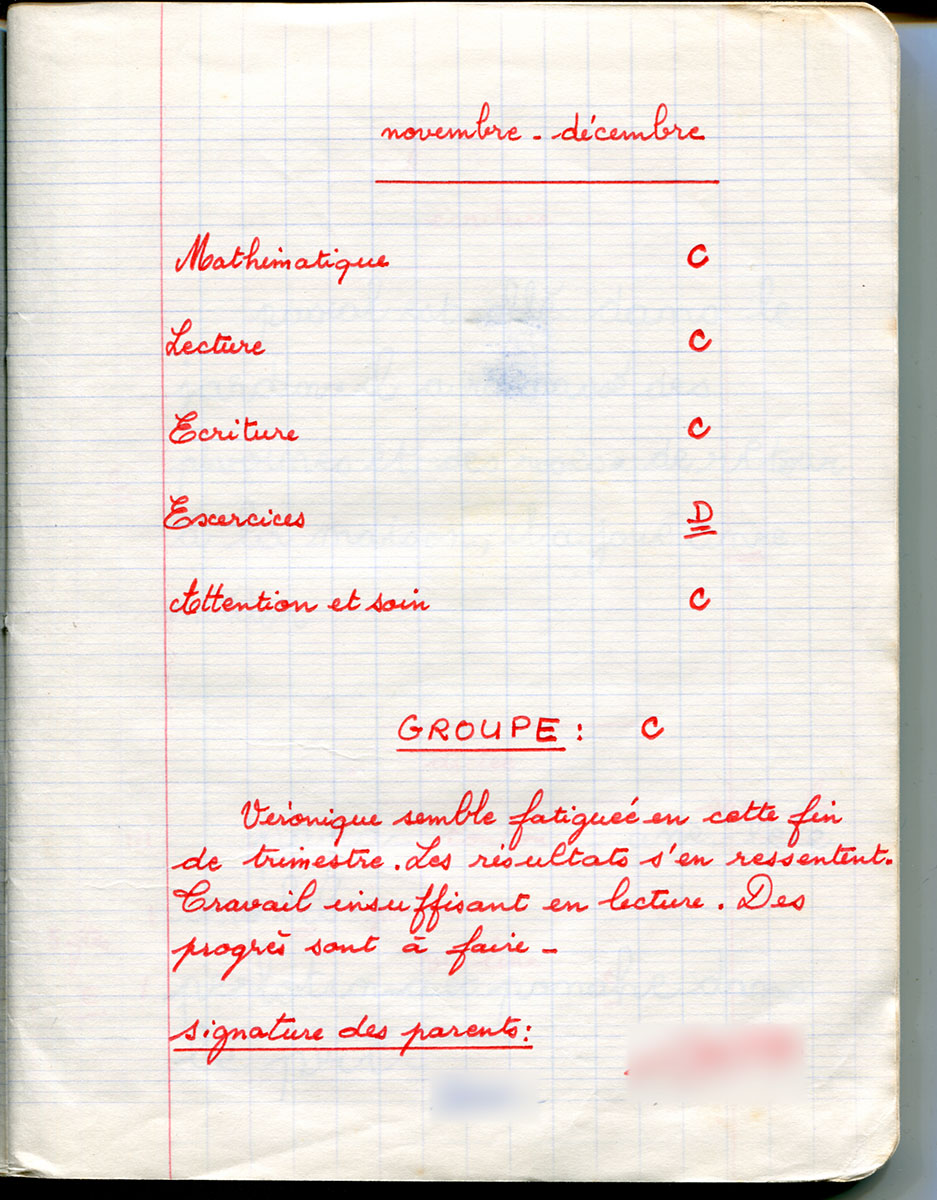 novembre - décembre
Mathématique C
Lecture C
Ecriture C
Exercices D
Attention et soin C
GROUPE : C
Véronique semble fatiguée en cette fin
de trimestre. Les résultats s'en ressentent.
Travail insuffisant en lecture. Des
progrès sont à faire -
signature des parents :